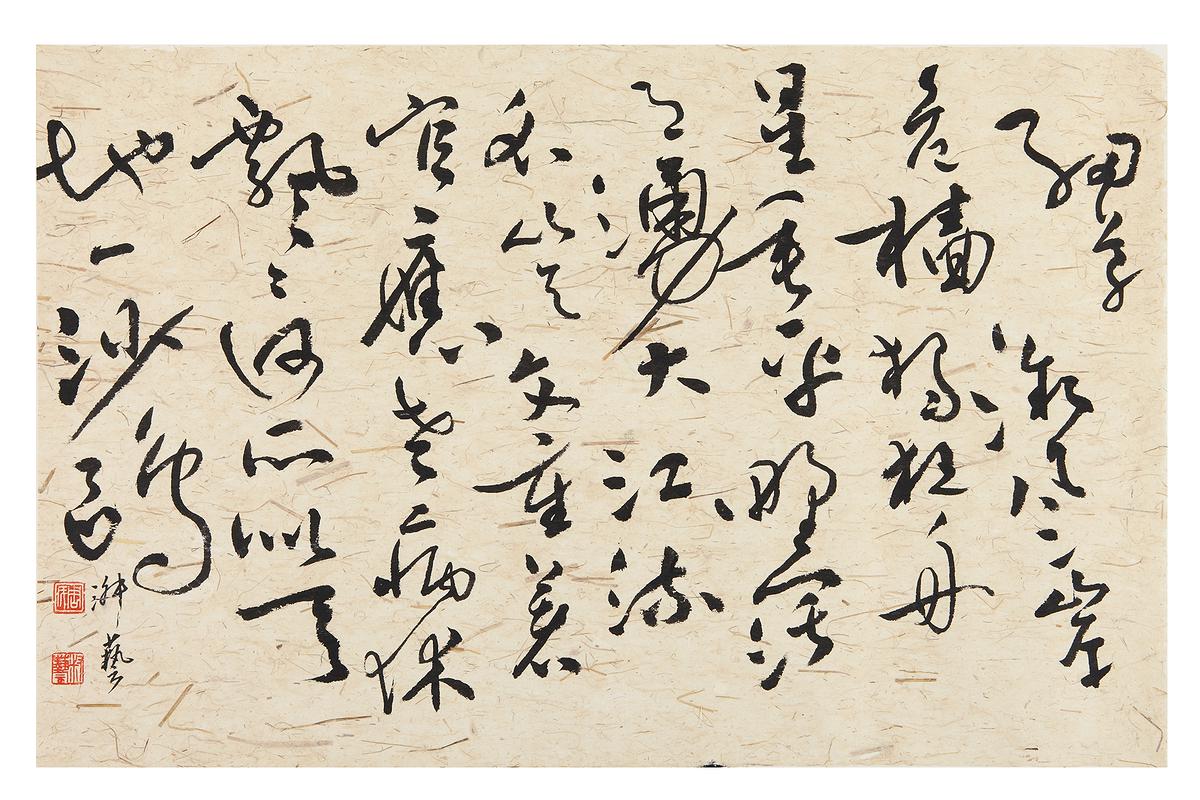 細草微風岸
危檣獨夜舟
星垂平野闊
月湧大江流
名豈文章著
官應老病休
飄飄何所似天
地一沙鷗
藝